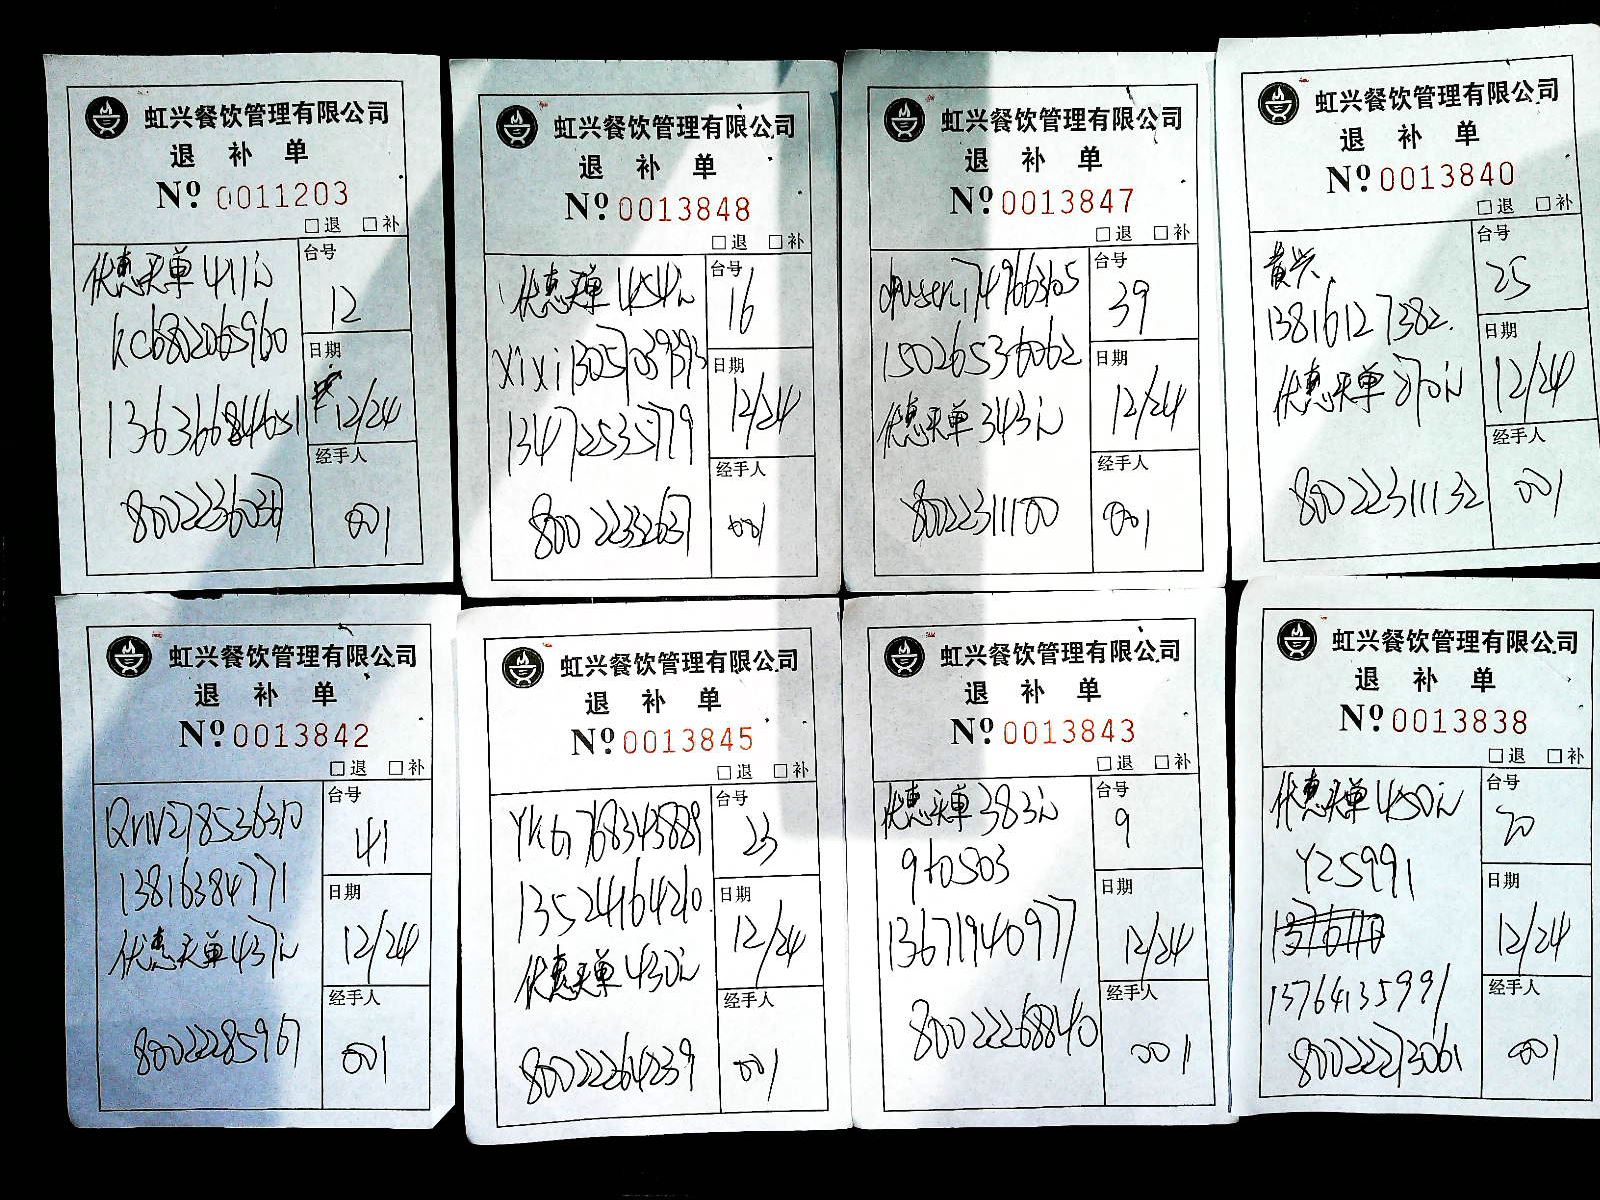 虹兴餐饮管理有限公司
退 补 单
Nº 0011203
□退 □补
优惠买单 411元
台号
12
kc682065960
日期
12/24
13636684651
经手人
001
虹兴餐饮管理有限公司
退 补 单
Nº 0013848
□退 □补
优惠买单 454元
台号
16
日期
12/24
13472535779
经手人
8002232637
001
虹兴餐饮管理有限公司
退 补 单
Nº 0013847
□退 □补
台号
39
15026536062
日期
12/24
优惠买单 343元
经手人
8002231110​0
001
虹兴餐饮管理有限公司
退 补 单
Nº 0013840
□退 □补
黄兴
台号
25
13816127382
日期
12/24
优惠买单 270元
经手人
80022311132
001
虹兴餐饮管理有限公司
退 补 单
Nº 0013842
□退 □补
台号
41
13816384771
日期
12/24
优惠买单 437元
经手人
80022285967
001
虹兴餐饮管理有限公司
退 补 单
Nº 0013845
□退 □补
台号
23
13524164210
日期
12/24
优惠买单 430元
经手人
80022264239
001
虹兴餐饮管理有限公司
退 补 单
Nº 0013843
□退 □补
优惠买单 383元
台号
9
9f0503
日期
12/24
13671940977
经手人
80022268840
001
虹兴餐饮管理有限公司
退 补 单
Nº 0013838
□退 □补
优惠买单 450元
台号
20
Y25991
日期
12/24
13764135991
经手人
80022273061
001